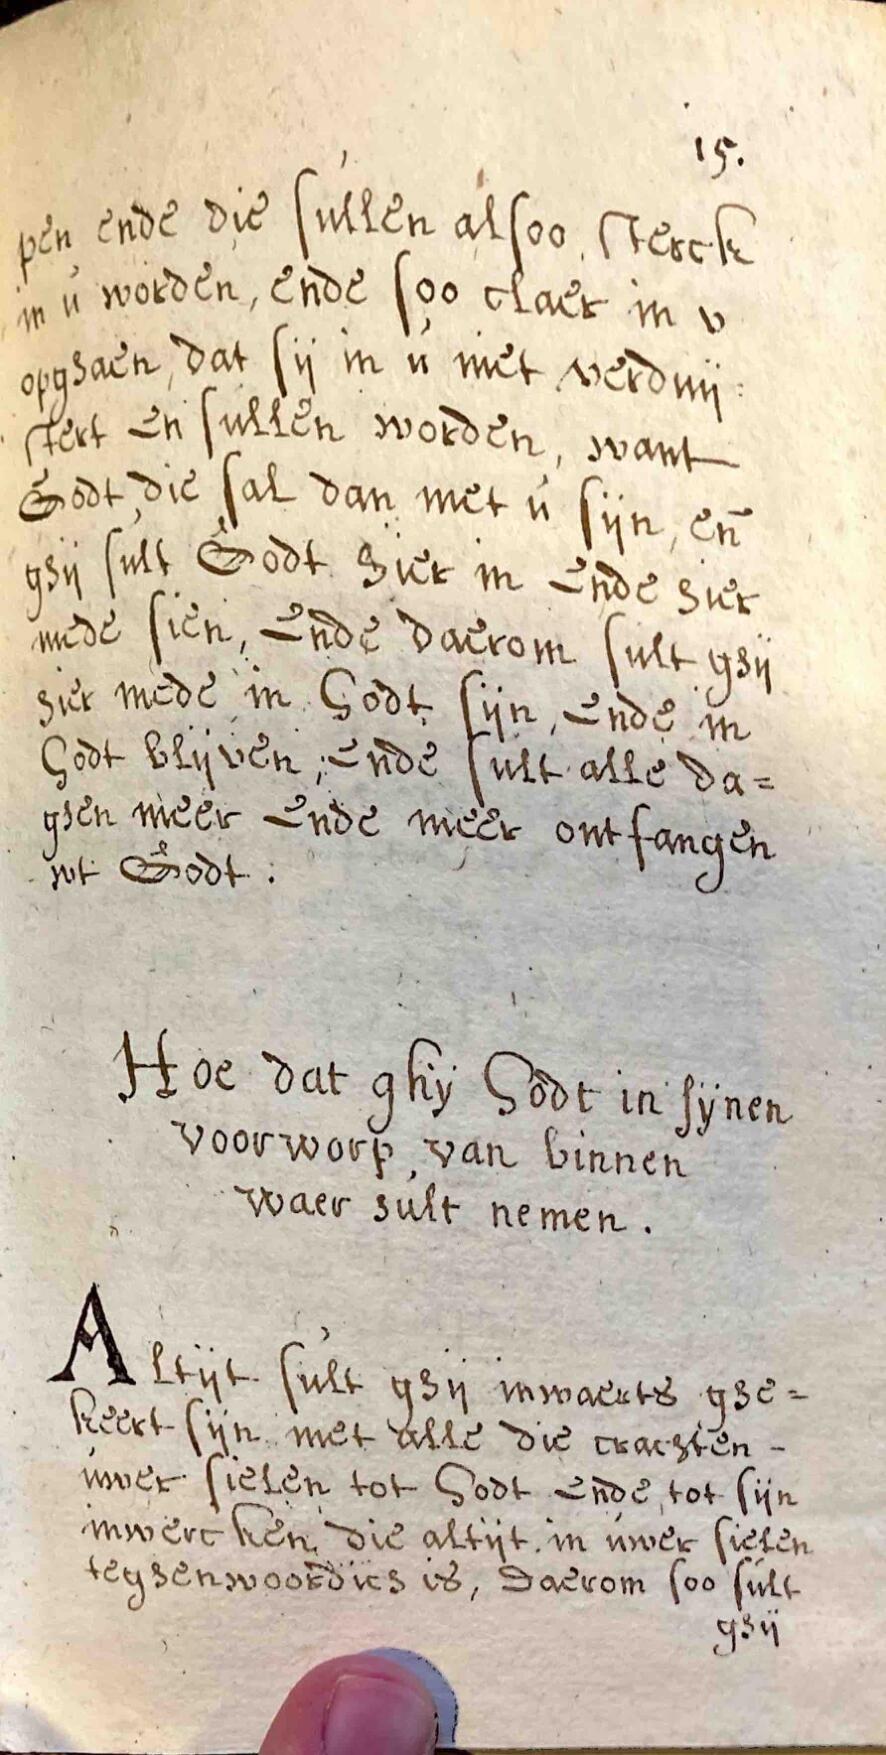 15.
pen ende die sullen alsoo sterck
in ú worden, ende soo claer in v
opghaen, dat sij in ú niet verduij:
stert en sullen worden, want
Godt die sal dan met ú sijn, en̄
ghij sult Godt hier in ende hier
mede sien, ende daerom sult ghij
hier mede in Godt sijn, ende in
Godt blijven; ende sult alle da=
ghen meer ende meer ontfangen
wt Godt.
Hoe dat ghij Godt in sijnen
voorworp, van binnen
waer sult nemen.
Altijt sult ghij inwaerts ghe=
keert sijn met alle die crachten -
úwer sielen tot Godt ende tot sijn
inwercken, die altijt in úwer sielen
teghenwoordich is, daerom soo sult
ghij